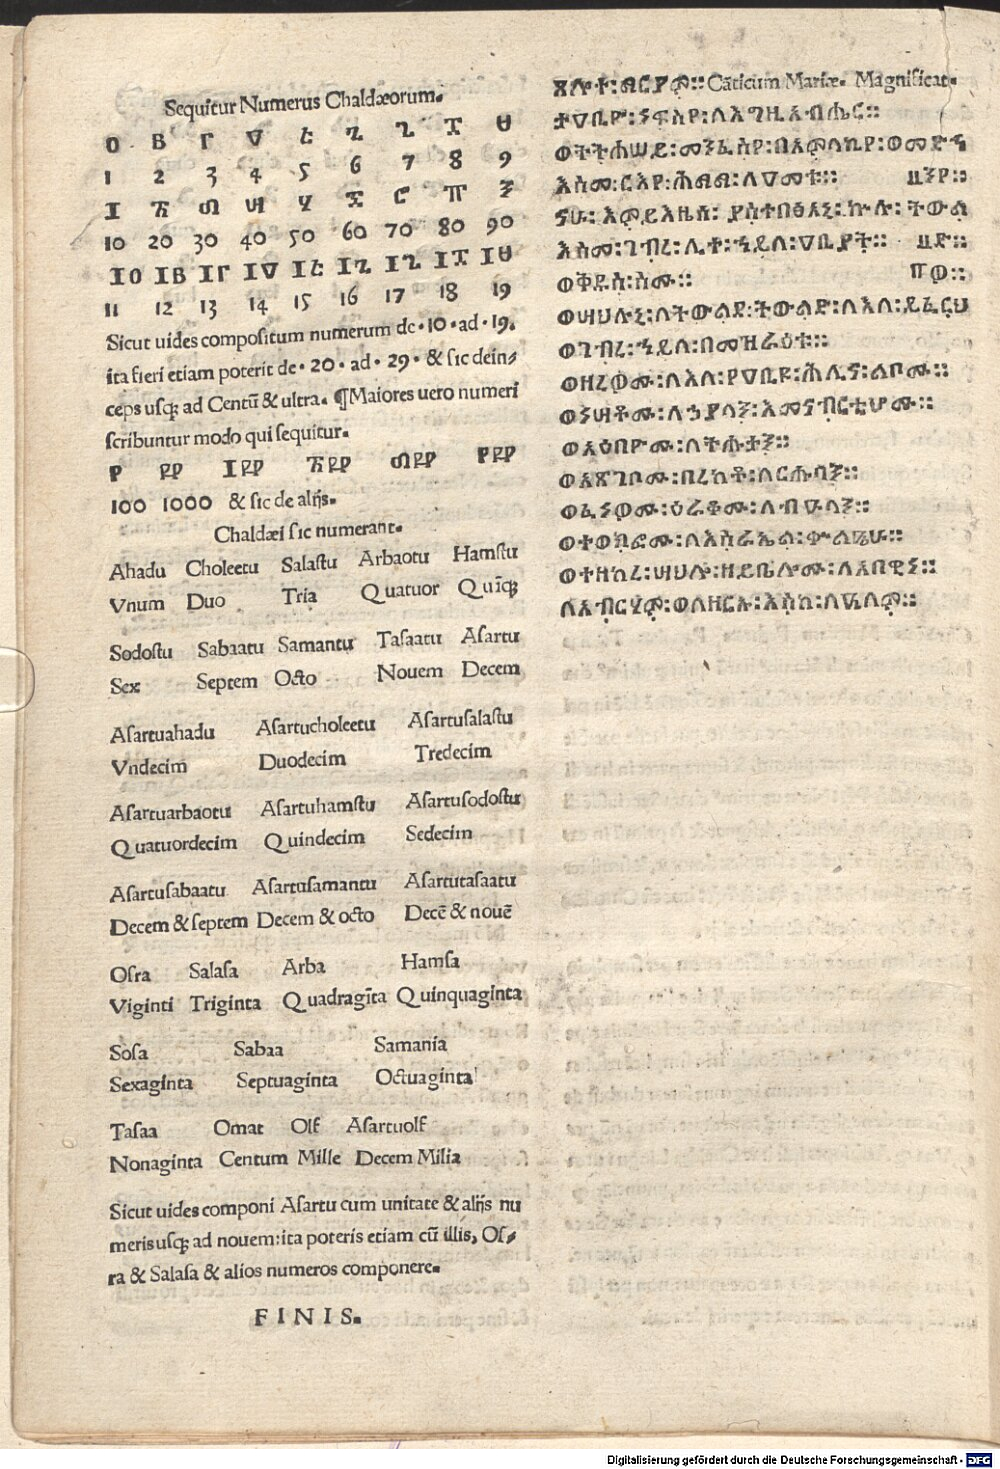 Sequitur Numerus Chaldæorum.
፩ ፪ ፫ ፬ ፭ ፮ ፯ ፰ ፱
1 2 3 4 5 6 7 8 9
፲ ፳ ፴ ፵ ፶ ፷ ፸ ፹ ፺
10 20 30 40 50 60 70 80 90
፲፩ ፲፪ ፲፫ ፲፬ ፲፭ ፲፮ ፲፯ ፲፰ ፲፱
11 12 13 14 15 16 17 18 19
Sicut uides compositum numerum de · 10 · ad · 19.
ita fieri etiam poterit de · 20 · ad · 29 · & sic dein⸗
ceps usq; ad Centū & ultra. ¶Maiores uero numeri
scribuntur modo qui sequitur.
፻ ፼ ፲፼ ፳፼ ፴፼ ፻፼
100 1000 & sic de alijs.
Chaldæi sic numerant.
Ahadu Choleetu Salastu Arbaotu Hamstu
Vnum Duo Tria Quatuor Quīq;
Sodostu Sabaatu Samantu Tasaatu Asartu
Sex Septem Octo Nouem Decem
Asartuahadu Asartucholeetu Asartusalastu
Vndecim Duodecim Tredecim
Asartuarbaotu Asartuhamstu Asartusodostu
Quatuordecim Quindecim Sedecim
Asartusabaatu Asartusamantu Asartutasaatu
Decem & septem Decem & octo Decē & nouē
Osra Salasa Arba Hamsa
Viginti Triginta Quadragīta Quinquaginta
Sosa Sabaa Samania
Sexaginta Septuaginta Octuaginta
Tasaa Omat Olf Asartuolf
Nonaginta Centum Mille Decem Milia
Sicut uides componi Asartu cum unitate & alijs nu
meris usq; ad nouem: ita poteris etiam cū illis, Os⸗
ra & Salasa & alios numeros componere.
FINIS.
ጸሎተ፡ማርያም። Cāticum Mariæ. Magnificat.
ታዐቢዮ፡ነፍስየ፡ለእግዚአብሔር።
ወትትሐሠይ፡መንፈስየ፡በአምላኪየ፡ወመድኀ
እስመ፡ርእየ፡ሕማማ፡ለዐመቱ። ኒየ።
ናሁ፡እምይእዜሰ፡ያስተበፅዓኒ፡ኵሉ፡ትውል
እስመ፡ገብረ፡ሊተ፡ኀይለ፡ዐቢያተ።
ወቅዱስ፡ስሙ።
ወሣህሉኒ፡ለትውልደ፡ትውልድ፡ለእለ፡ይፈርህ
ወገብረ፡ኀይለ፡በመዝራዕቱ።
ወዘረዎሙ፡ለእለ፡የዐቢዩ፡ሕሊና፡ልቦሙ።
ወነሠቶሙ፡ለኃያላን፡እመናብርቲሆሙ።
ወአዕበዮሙ፡ለትሑታን።
ወአጽገቦሙ፡በረከቶ፡ለርሑባን።
ወፈነዎሙ፡ዕራቆሙ፡ለብዑላን።
ወተወክፎሙ፡ለእስራኤል፡ቍልዔሁ።
ወተዘከረ፡ሣህሎ፡ዘይቤሎሙ፡ለአበዊነ።
ለአብርሃም፡ወለዘርኡ፡እስከ፡ለዓለም።
Digitalisierung gefördert durch die Deutsche Forschungsgemeinschaft - DFG